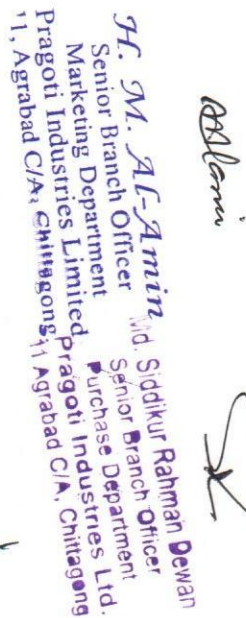 H. M. Al-Amin
Senior Branch Officer
Marketing Department
Pragoti Industries Limited
11, Agrabad C/A, Chittagong.
Md. Siddikur Rahman Dewan
Senior Branch Officer
Purchase Department
Pragoti Industries Ltd.
11 Agrabad C/A, Chittagong